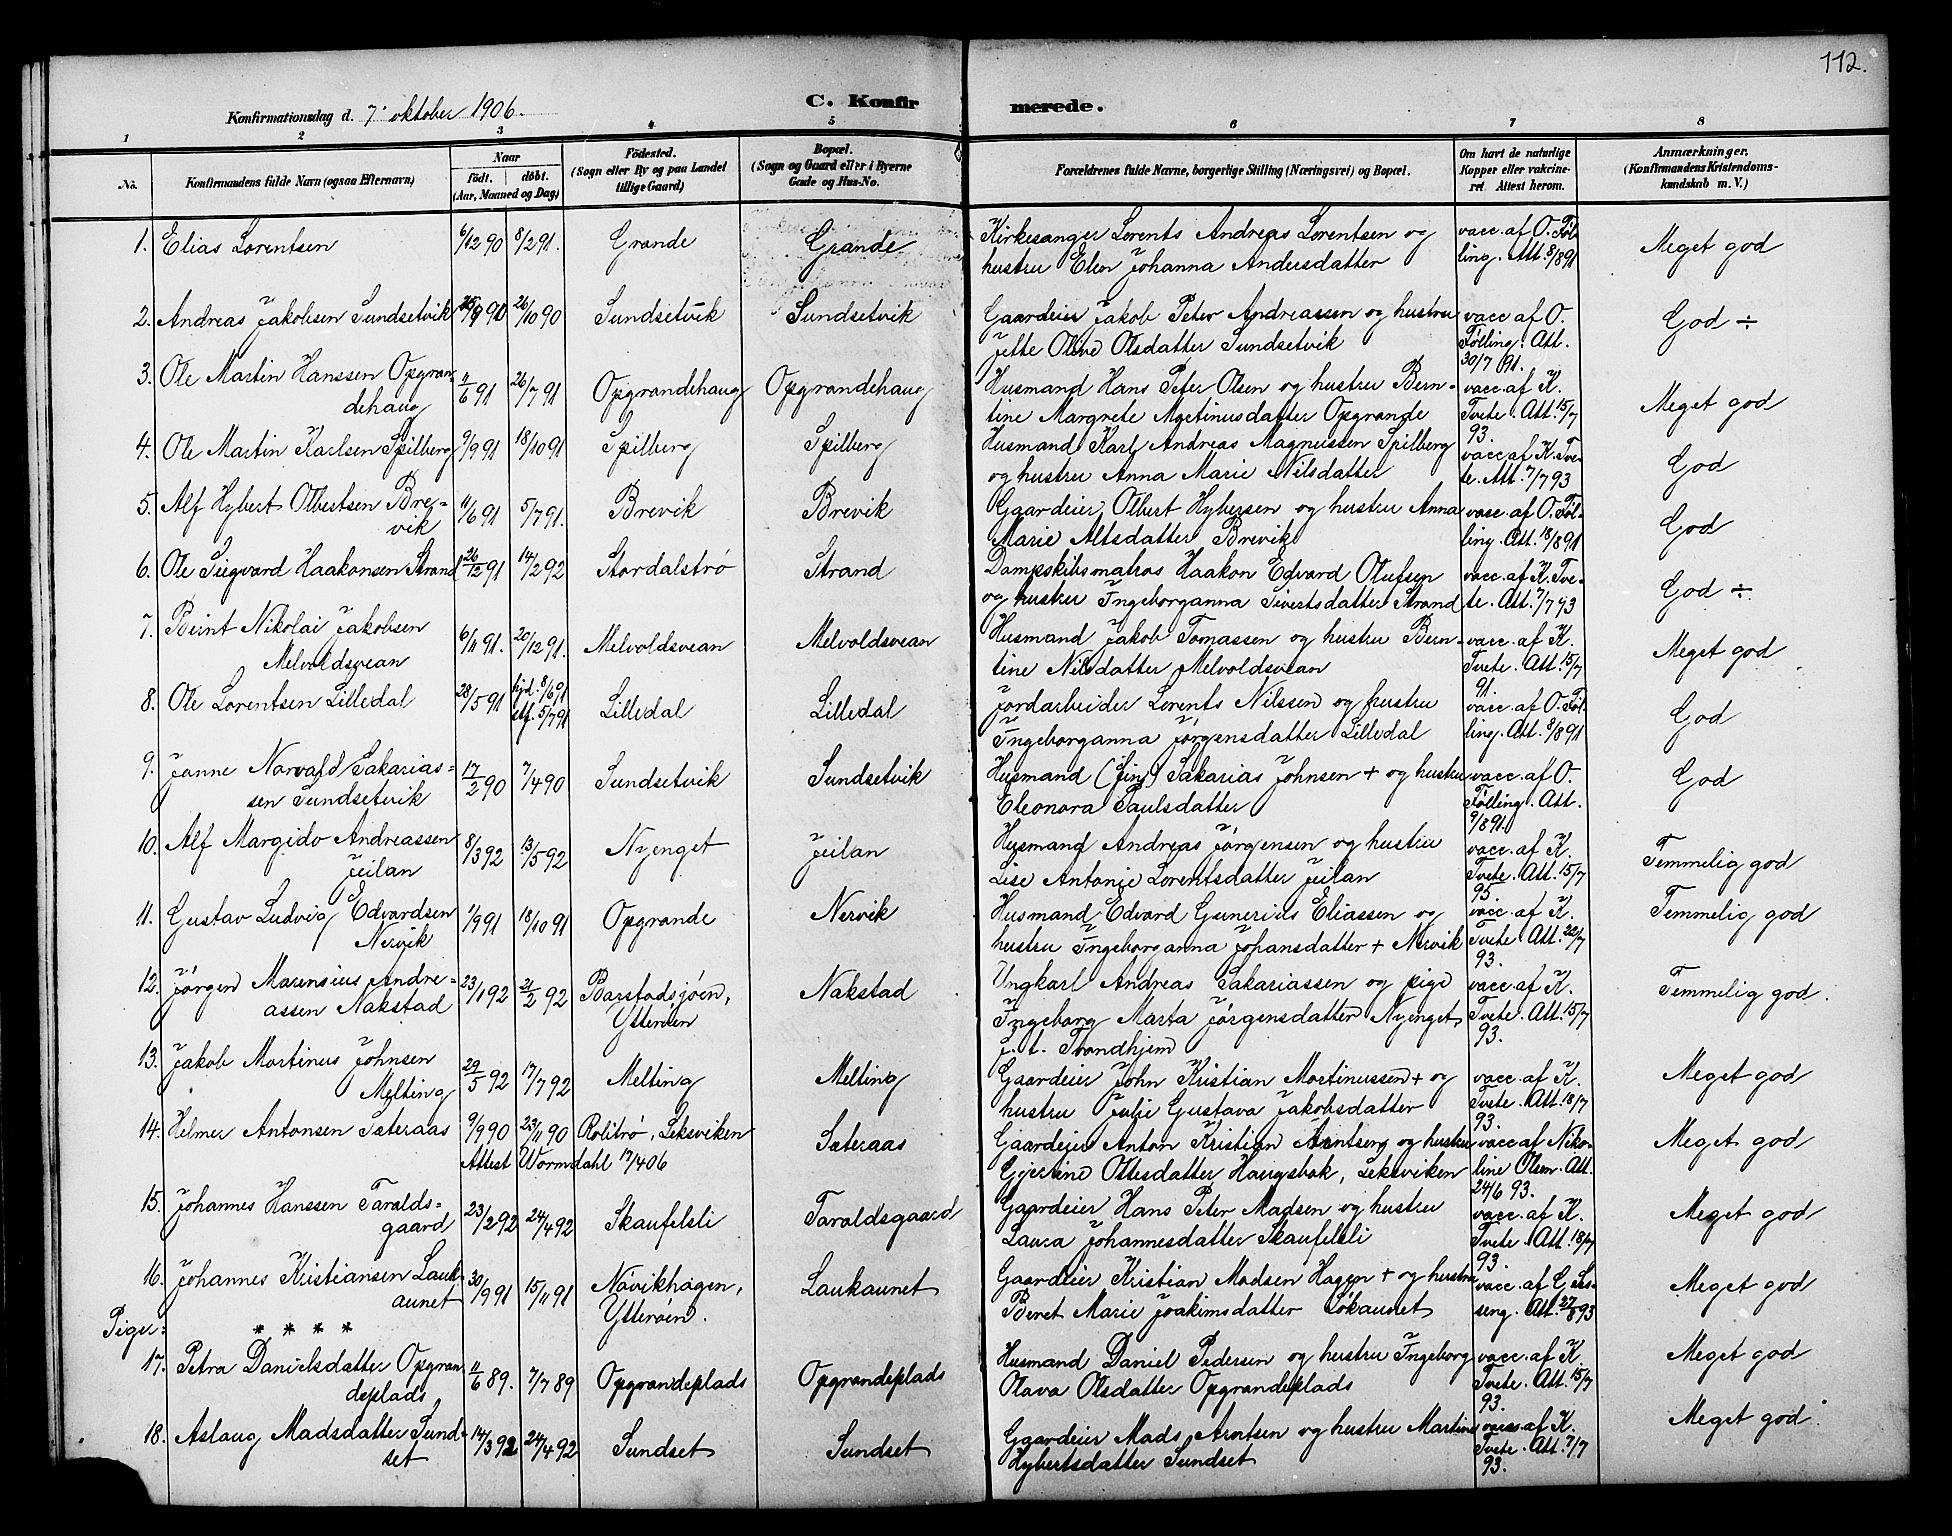 112.
Konfirmationsdag d. 7. oktober 1906.
C. Konfirmerede.
1 2 3 4 5 6 7 8
No.
Konfirmandens fulde Navn (ogsaa Efternavn)
Naar
Födt. döbt.
(Aar, Maaned og Dag)
Födested.
(Sogn eller By og paa Landet
tillige Gaard)
Bopæl.
(Sogn og Gaard eller i Byerne
Gade og Hus-No.
Forældrenes fulde Navne, borgerlige Stilling (Næringsvei) og Bopæl.
Om havt de naturlige
Kopper eller vakcine-
ret. Attest herom.
Anmærkninger.
(Konfirmandens Kristendoms-
kundskab m. V.)
1. Elias Lorentsen 6/12 90 8/2 91. Grande Grande
Kirkesanger Lorents Andreas Lorentsen og
hustru Elen Johanna Andersdatter
vacc. af O. Föl-
ling. Att. 8/8 91
Meget god
2. Andreas Jakobsen Sundsetvik 90 26/10 90 Sundsetvik Sundsetvik
Gaardeier Jakob Peter Andreassen og hustru
Jette Olive Olsdatter Sundsetvik
vacc af O.
Følling. Att.
30/7 91.
God ÷
3. Ole Martin Hanssen Opgran-
dehaug
11/6 91 26/7 91 Opgrandehaug Opgrandehaug
Husmand Hans Peter Olsen og hustru Bern-
tine Margrete Martinusdatter Opgrande
vacc. af K.
Tvete. Att. 15/7
93.
Meget god
4. Ole Martin Karlsen Spilberg 9/9 91 18/10 91 Spilberg Spilberg
Husmand Karl Andreas Magnussen Spilberg
og hustru Anna Marie Nilsdatter
vacc. af K. Tve-
te. Att. 7/7 93
God
5. Alf Hybert Olbertsen Bre-
vik
11/6 91 5/7 91. Brevik Brevik
Gaardeier Olbert Hybersen og hustru Anna
Marie Altsdatter Brevik
vacc. af O. Föl-
ling. Att. 18/8 91
God
6. Ole Sigvard Haakonsen Strand 26/12 91 14/2 92 Stordalstrø Strand
Dampskibsmatros Haakon Edvard Olufsen
og hustru Ingeborganna Sivertsdatter Strand
vacc. af K. Tve-
te. Att. 7/7 93
God ÷
7. Beint Nikolai Jakobsen
Melvoldsvean
6/11 91. 20/12 91. Melvoldsvean Melvoldsvean
Husmand Jakob Tomassen og hustru Bern-
tine Nilsdatter Melvoldsvean
vacc. af K.
Tvete. Att. 15/7
91.
Meget god
8. Ole Lorentsen Lilledal 28/5 91 hjd. 8/6 91
stf. 5/7 91
Lilledal Lilledal
Jordarbeider Lorents Nilssen og hustru
Ingeborganna Jörgensdatter Lilledal
vacc. af O. Föl-
ling. Att. 8/8 91
God
9. Janne Narvald Sakarias-
sen Sundsetvik
17/2 90 7/4 90 Sundsetvik Sundsetvik
Husmand (Fin) Sakarias Johnsen + og hustru
Eleonora Paulsdatter
vacc. af O.
Følling. Att.
9/8 91.
God
10. Alf Margido Andreassen
Jeilan
8/3 92 13/5 92 Nyenget Jeilan
Husmand Andreas Jørgensen og hustru
Lise Antonie Lorentsdatter Jeilan
vacc. af K.
Tvete. Att. 15/7
95.
Temmelig god
11. Gustav Ludvig Edvardsen
Nervik
1/9 91 18/10 91 Opgrande Nervik
Husmand Edvard Gunerius Eliassen og
hustru Ingeborganna Johansdatter + Nervik
vacc. af K.
Tvete. Att. 22/7
93.
Temmelig god
12. Jørgen Marensius Andre-
assen Nakstad
23/1 92 21/2 92 Barstadsjøen,
Ytterøen
Nakstad
Ungkarl Andreas Sakariassen og pige
Ingeborg Marta Jørgensdatter Nyenget
f. t. Trondhjem
vacc. af K.
Tvete. Att. 15/7
93.
Temmelig god.
13. Jakob Martinus Johnsen
Melting
29/5 92 17/7 92 Melting Melting
Gaardeier John Kristian Martinussen + og
hustru Julie Gustava Jakobsdatter
vacc. af K.
Tvete. Att. 18/7
93.
Meget god
14. Helmer Antonsen Sæteraas 9/9 90 23/11 90 Rolitrø, Leksviken Sæteraas
Attest Wormdahl 17/4 06
Gaardeier Anton Kristian Arntsen og hustru
Gjertine Ottesdatter Haugsbak, Leksviken
vacc af Niko-
line Olsen. Att.
24/6 93.
Meget god
15. Johannes Hanssen Taralds-
gaard
23/2 92 24/4 92 Skaufelsli Taraldsgaard
Gaardeier Hans Peter Madsen og hustru
Laura Johannesdatter Skaufelsli
vacc. af K.
Tvete. Att. 18/7
93.
Meget god
16. Johannes Kristiansen Lauk-
aunet
30/9 91 15/11 91 Navikhagen,
Ytterøen.
Laukaunet
Gaardeier Kristian Madsen Hagen + og hustru
Beret Marie Joakimsdatter Løkaunet
vacc. af
seng. Att. 27/8 93
Meget god
Piger: * * * *
17. Petra Danielsdatter Opgran
deplads
11/6 89. 7/7 89 Opgrandeplads Opgrandeplads
Husmand Daniel Pedersen og hustru Ingeborg
Olava Olsdatter Opgrandeplads
vacc. af K.
Tvete. Att. 15/7
93.
Meget god
18. Aslaug Madsdatter Sund-
set
14/3 92 24/4 92 Sundset Sundset
Gaardeier Mads Arntsen og hustru Martine
Hybertsdatter Sundset
vacc. af K.
Tvete. Att. 7/7
93.
Meget god.